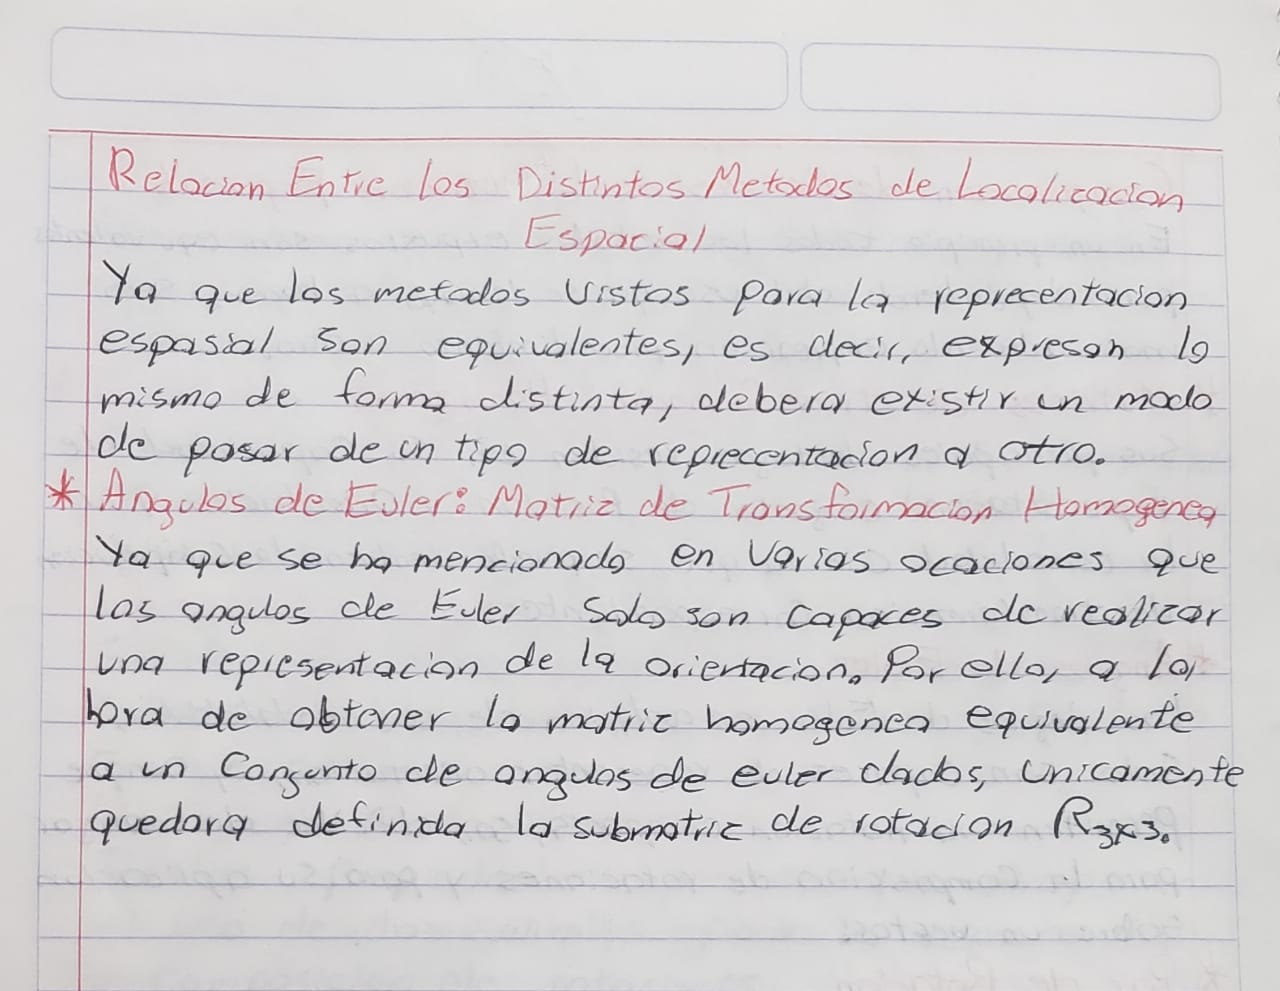 Relacion Entre los Distintos Metodos de Localizacion
Espacial
Ya que los metodos vistos para la reprecentacion
espasial son equivalentes, es decir, expresan lo
mismo de forma distinta, debera existir un modo
de pasar de un tipo de reprecentacion a otro.
* Angulos de Euler: Matriz de Transformacion Homogenea
Ya que se ha mencionado en varias ocaciones que
los angulos de Euler solo son capaces de realizar
una representacion de la orientacion. Por ello, a la
hora de obtener la matriz homogenea equivalente
a un Congunto de angulos de euler dados, unicamente
quedara definida la submatriz de rotacion R3x3.